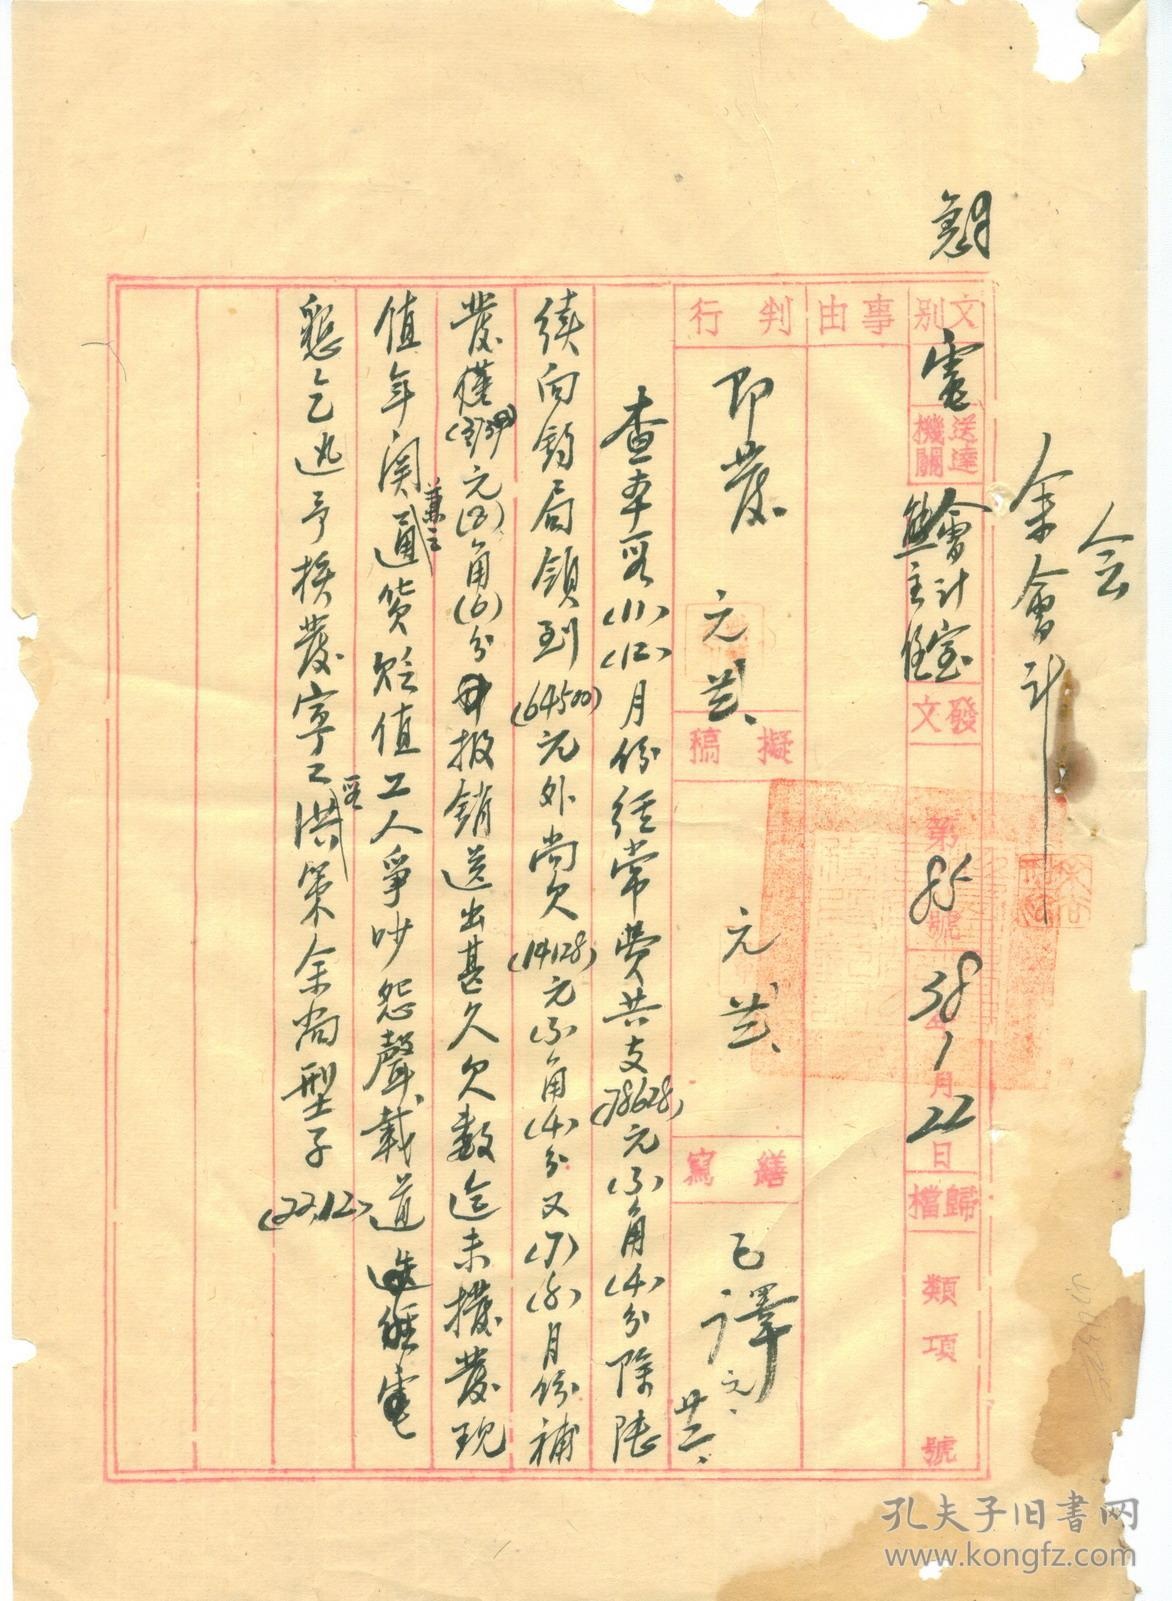 余會計
会
文別
電
送達機關
會計室
主任
發文
第85號
38年1月22日
歸檔
類項號
事由
判行
即發
元
擬稿
元
繕寫
已譯
元
查本段(11)(12)月份經常費共支(78628)元(3)角(4)分除陸
續向鈞局領到(64500)元外尚欠(14128)元(3)角(4)分又(7)(8)月份補
發僅元(2)角(6)分報銷送出甚久欠數迄未撥發現
值年関兼之通貨貶值工人爭吵怨聲載道經電
懇乞迅予撥發寧工段
(22.12)
孔夫子旧書网
www.kongfz.com